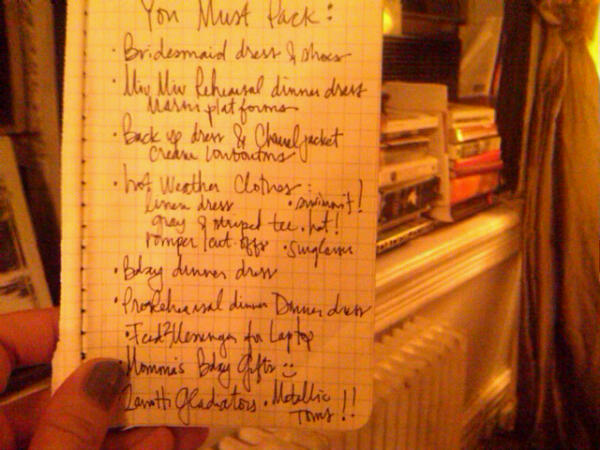 You Must Pack:
· Bridesmaid dress & shoes
· Miu Miu Rehearsal dinner dress
Marni platforms
· Back up dress & Chanel jacket
cream louboutins
· hot Weather Clothes:
linen dress · swimsuit!
gray & striped tee · hat!
romper/cut-offs · sunglasses
· Bday dinner dress
· Pre Rehearsal dinner Dinner dress
· Messenger for Laptop
· Momma's Bday Gifts :)
Zanotti Gladiators · Metallic
Toms!!